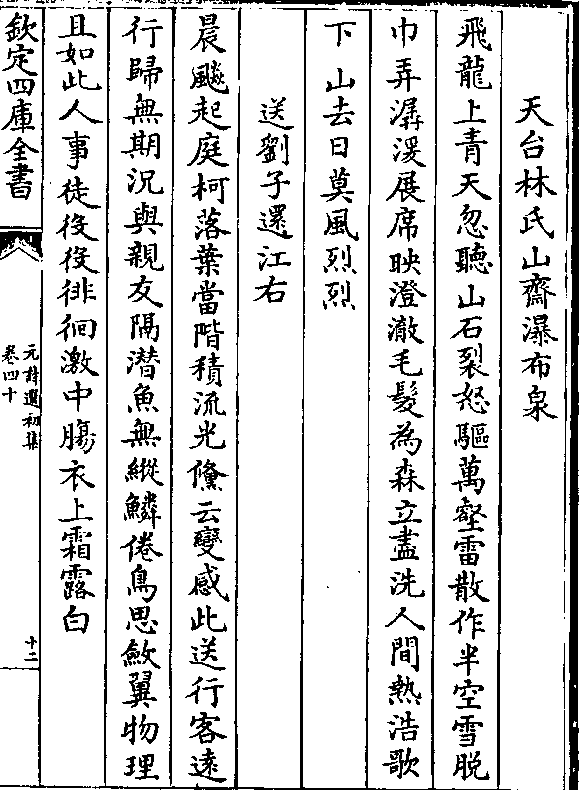 天台林氏山齋瀑布泉
飛龍上青天忽聽山石裂怒驅萬壑雷散作半空雪脱
巾弄潺湲展席映澄澈毛髮為森立盡洗人間熱浩歌
下山去日莫風烈烈
送劉子還江右
晨飈起庭柯落葉當階積流光儵云變感此送行客逺
行歸無期況與親友隔潜魚無縱鱗倦鳥思斂翼物理
且如此人事徒役役徘徊激中膓衣上霜露白
欽定四庫全書
元詩選初集
卷四十
十二